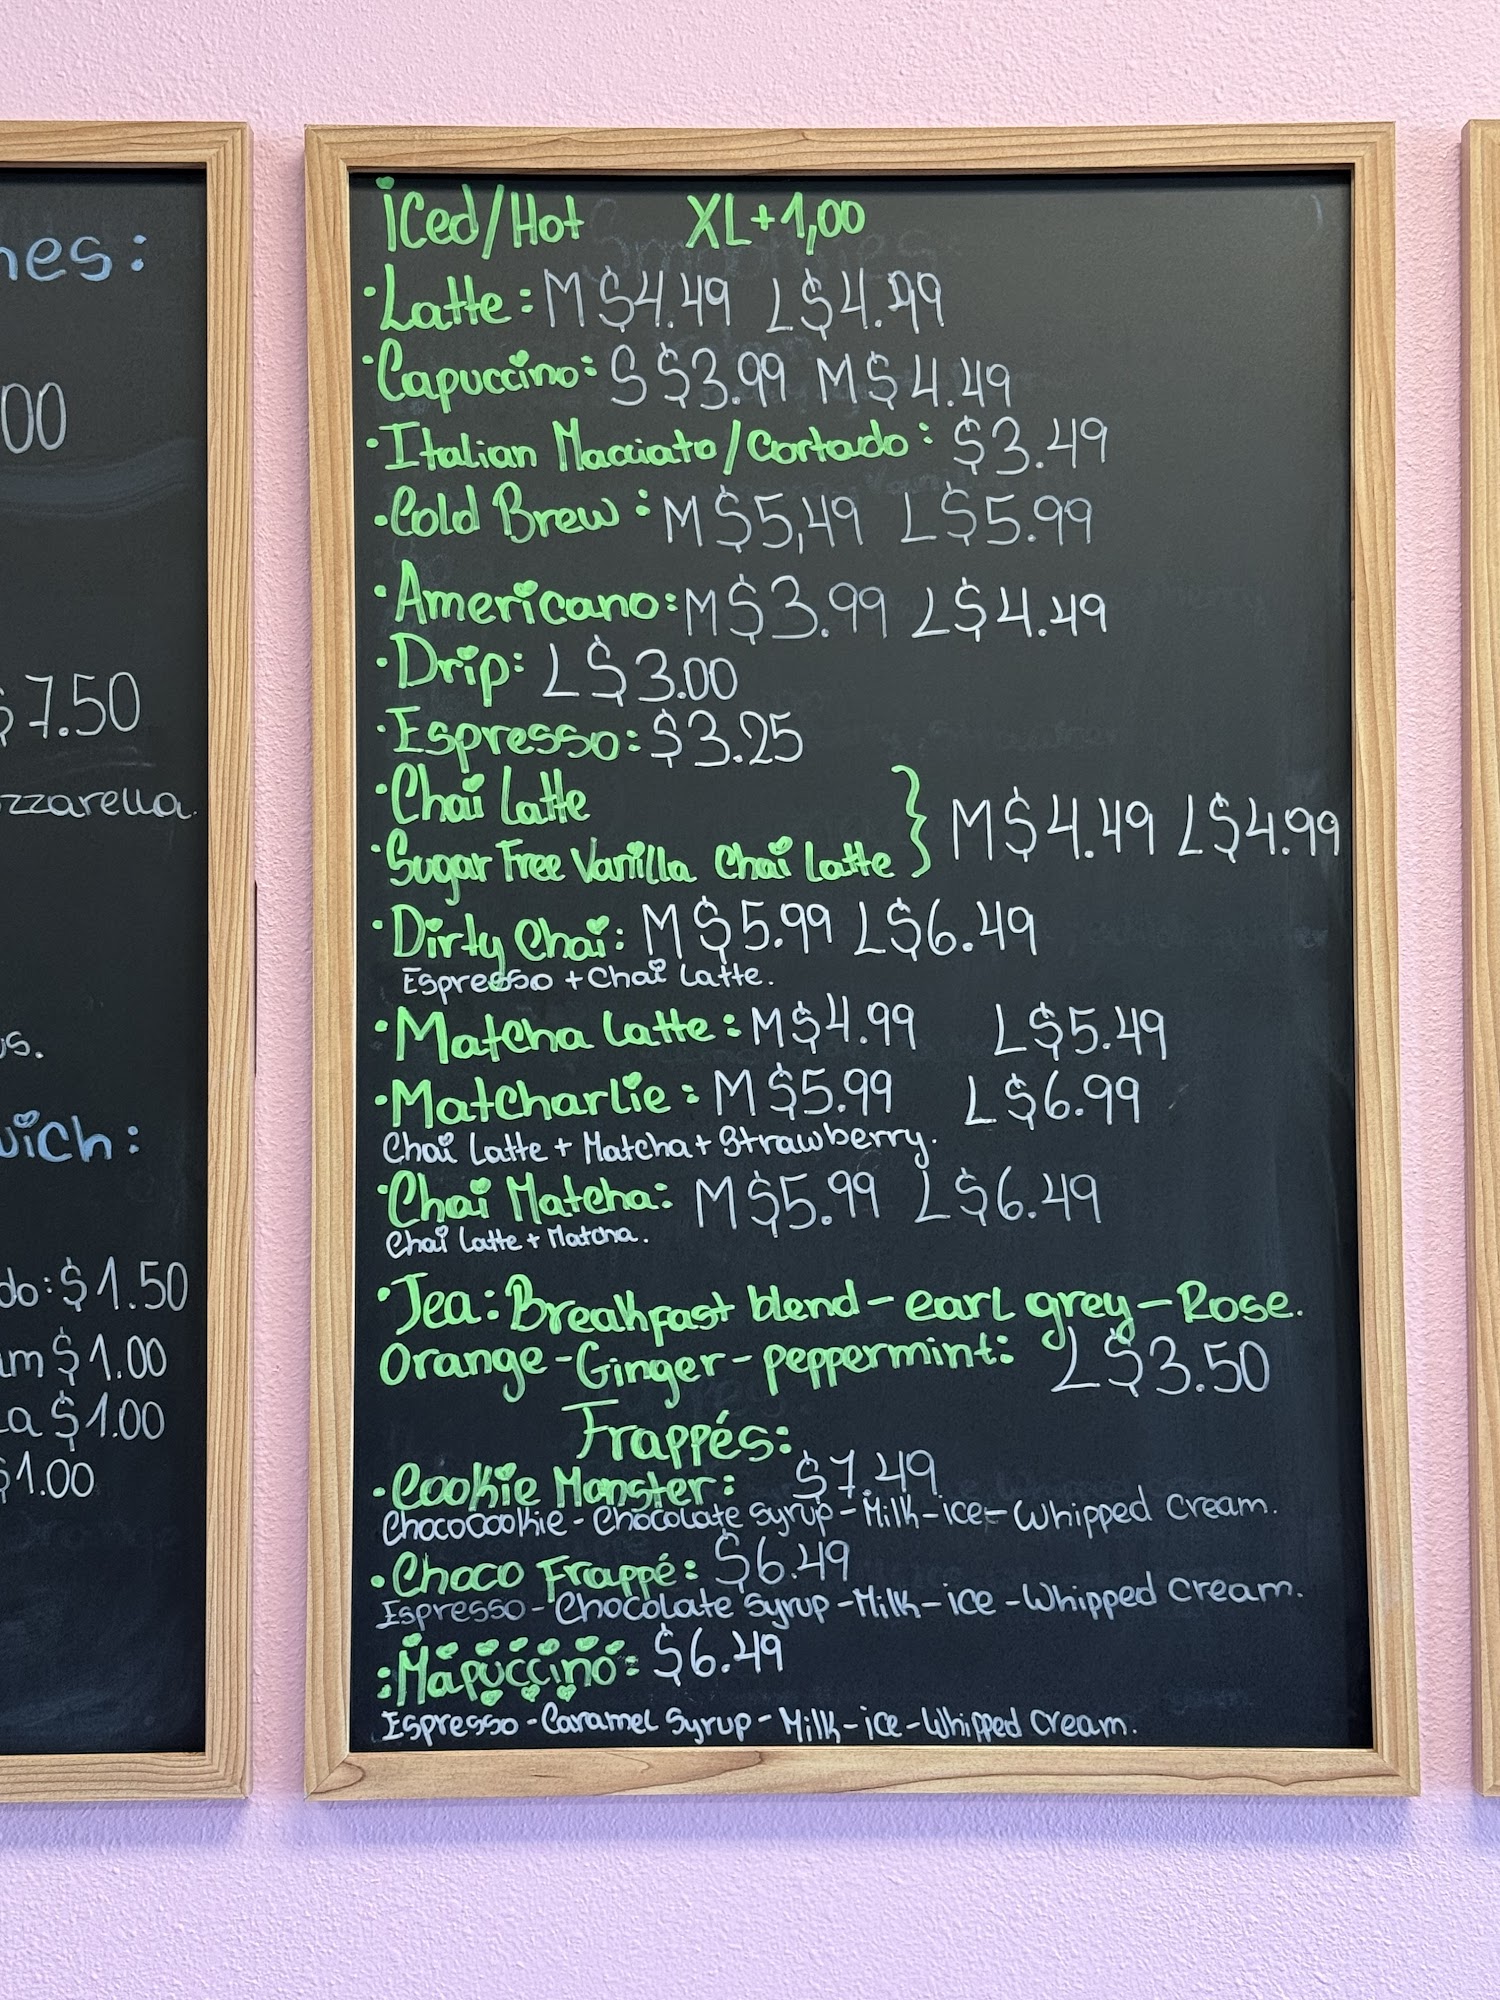 nes:
00
$7.50
ozzarella.
us.
wich:
do: $1.50
am $1.00
la $1.00
$1.00
iced/Hot XL+1,00
·Latte: M $4.49 L $4.99
·Capuccino: S $3.99 M $4.49
·Italian Macciato/Cortado: $3.49
·Cold Brew: M $5,49 L $5.99
·Americano: M $3.99 L $4.49
·Drip: L $3.00
·Espresso: $3.25
·Chai Latte
·Sugar Free Vanilla Chai Latte } M $4.49 L $4.99
·Dirty Chai: M $5.99 L $6.49
Espresso + Chai Latte.
·Matcha Latte: M $4.99 L $5.49
·Matcharlie: M $5.99 L $6.99
Chai Latte + Matcha + Strawberry.
·Chai Matcha: M $5.99 L $6.49
Chai Latte + Matcha.
·Tea: Breakfast blend - earl grey - Rose.
Orange - Ginger - peppermint: L $3.50
Frappés:
·Cookie Monster: $7.49
ChocoCookie - Chocolate Syrup - Milk - ice - Whipped Cream.
·Choco Frappé: $6.49
Espresso - Chocolate Syrup - Milk - ice - Whipped Cream.
:Mapuccino: $6.49
Espresso - Caramel Syrup - Milk - ice - Whipped Cream.